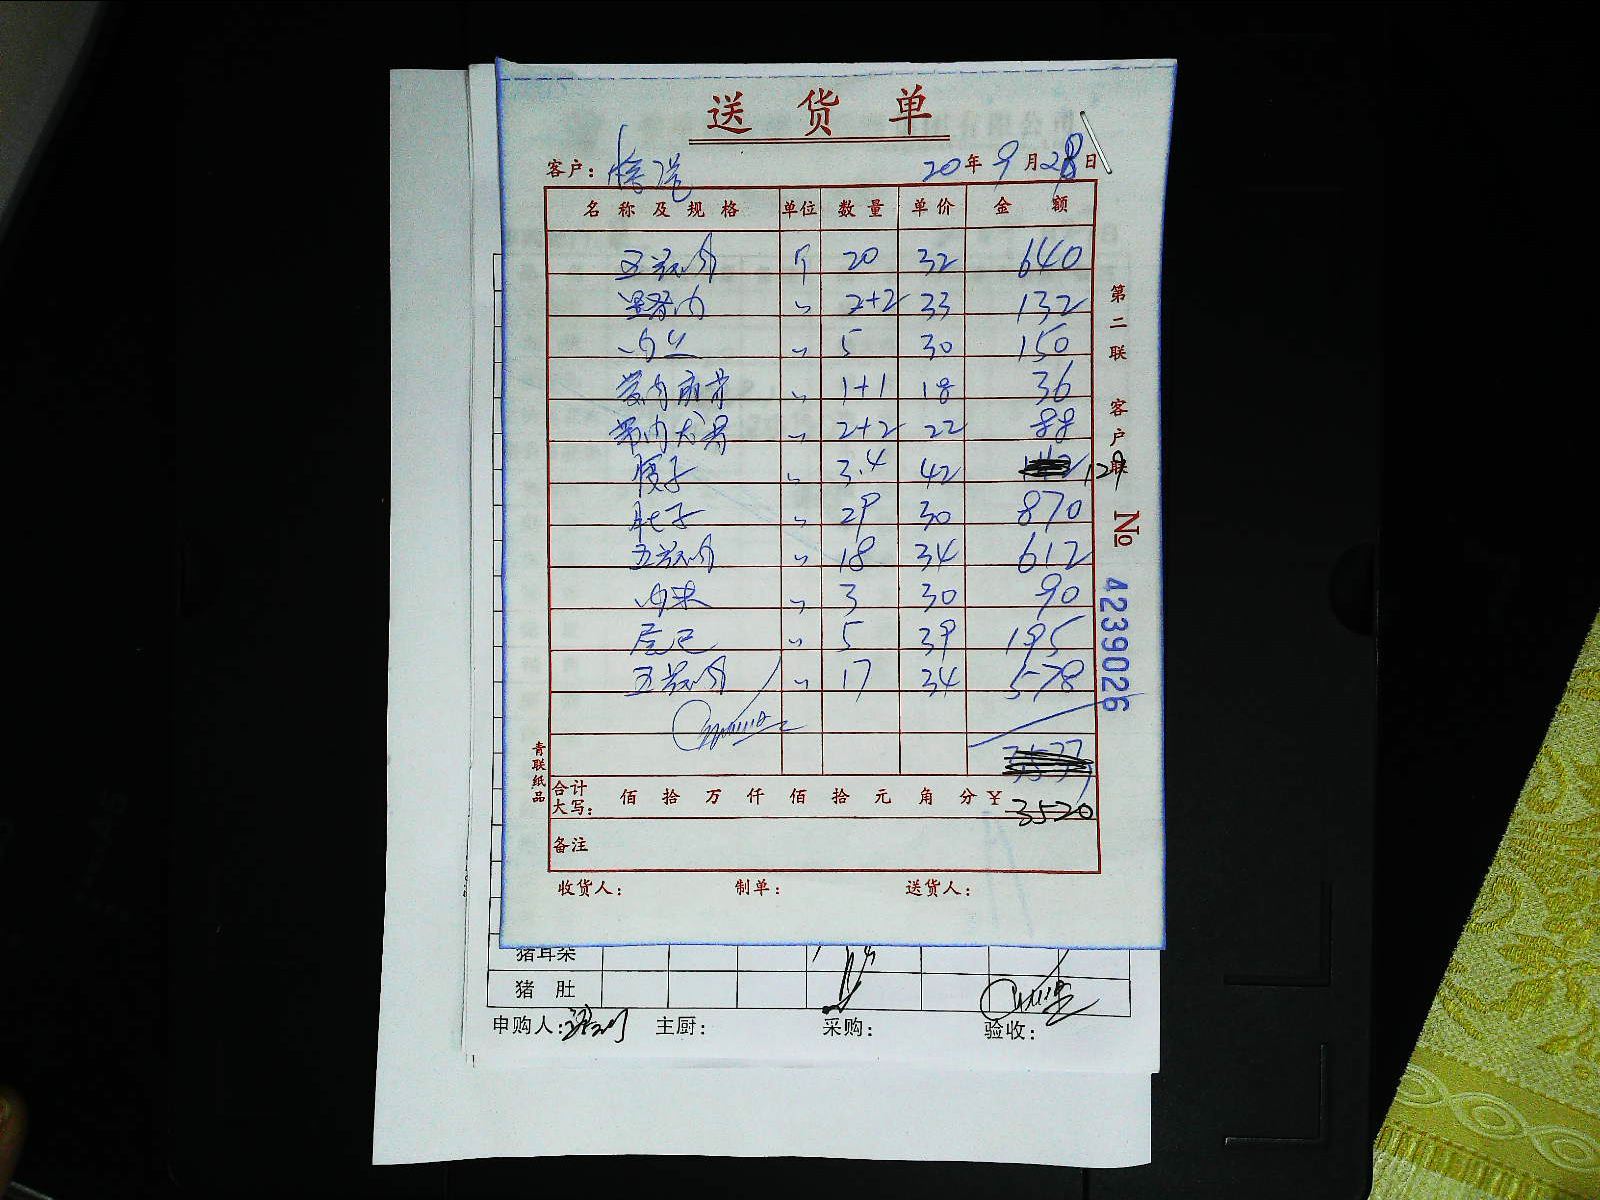 送货单
客户： 20年9月28日
名称及规格 单位 数量 单价 金额
五花肉 斤 20 32 640
里脊肉 〃 2+2 33 132
肉丝 〃 5 30 150
〃 1+1 18 36
带肉大骨 〃 2+2 22 88
腰子 〃 3.4 42 129
肚子 〃 29 30 870
五花肉 〃 18 34 612
肉末 〃 3 30 90
尾巴 〃 5 39 195
五花肉 〃 17 34 578
合计大写： 佰 拾 万 仟 佰 拾 元 角 分 ¥ 3520
备注
收货人： 制单： 送货人：
第二联 客户联
№ 4239026
青联纸品
猪耳朵
猪肚
申购人： 主厨： 采购： 验收：